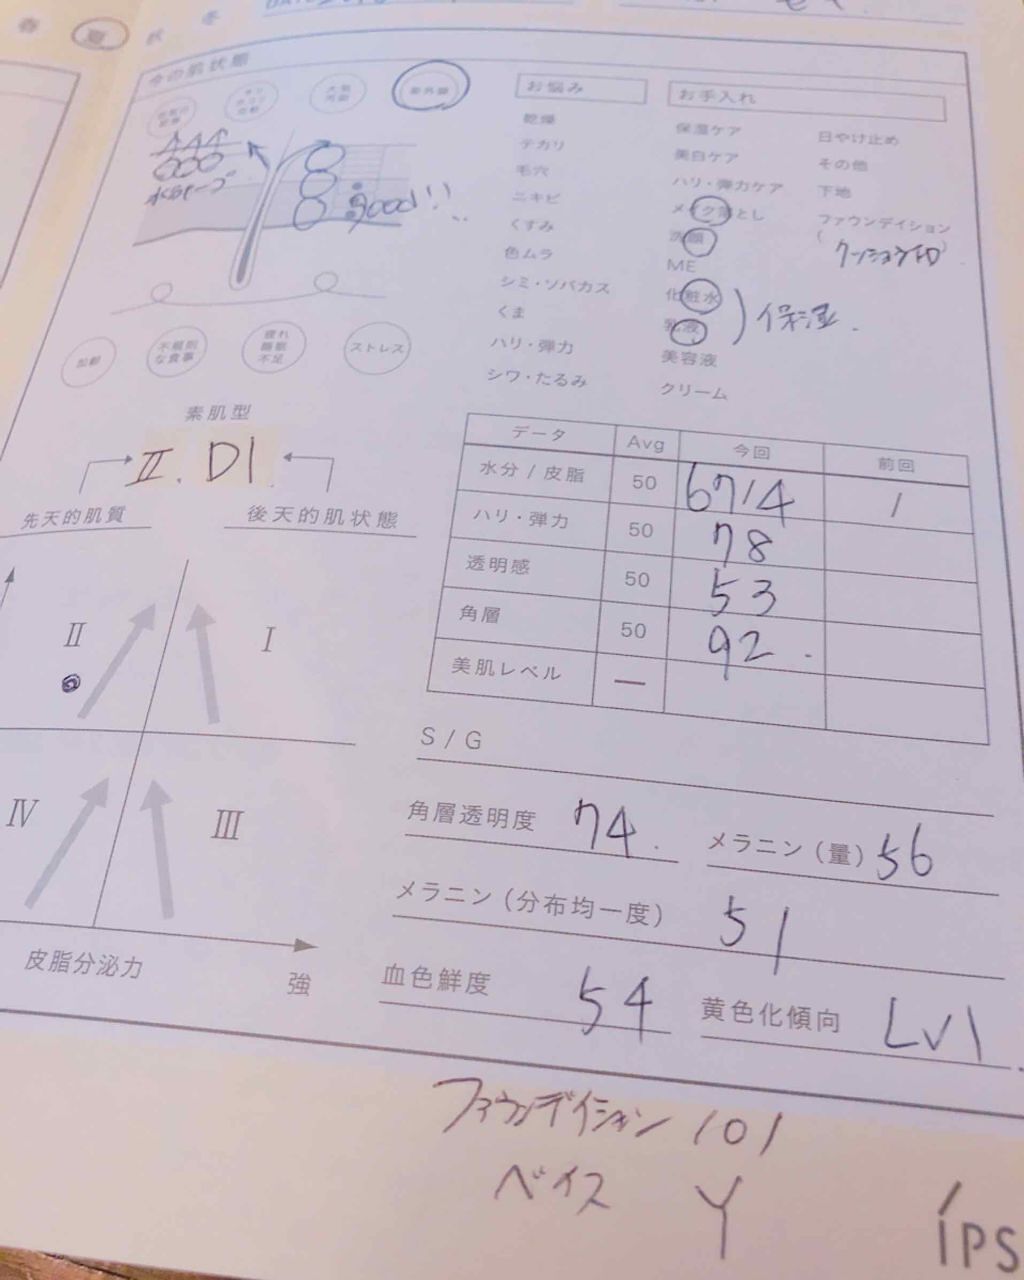 春 夏 秋 冬
今の肌状態
紫外線
水分テープ
good!!
加齢
不規則
な食事
疲れ
睡眠
不足
ストレス
お悩み
乾燥
テカリ
毛穴
ニキビ
くすみ
色ムラ
シミ・ソバカス
くま
ハリ・弾力
シワ・たるみ
お手入れ
保湿ケア
美白ケア
ハリ・弾力ケア
メイク落とし
洗顔
ME
化粧水
乳液
保湿
美容液
クリーム
日やけ止め
その他
下地
ファウンデイション
素肌型
Ⅱ. D1
先天的肌質
後天的肌状態
Ⅱ
Ⅰ
Ⅳ
Ⅲ
皮脂分泌力
強
データ Avg 今回 前回
水分 / 皮脂 50 67/14 /
ハリ・弾力 50 78
透明感 50 53
角層 50 92
美肌レベル —
S / G
角層透明度 74 メラニン（量） 56
メラニン（分布均一度） 51
血色鮮度 54 黄色化傾向 Lv1
ファウンデイション 101
ベイス Y
iPS